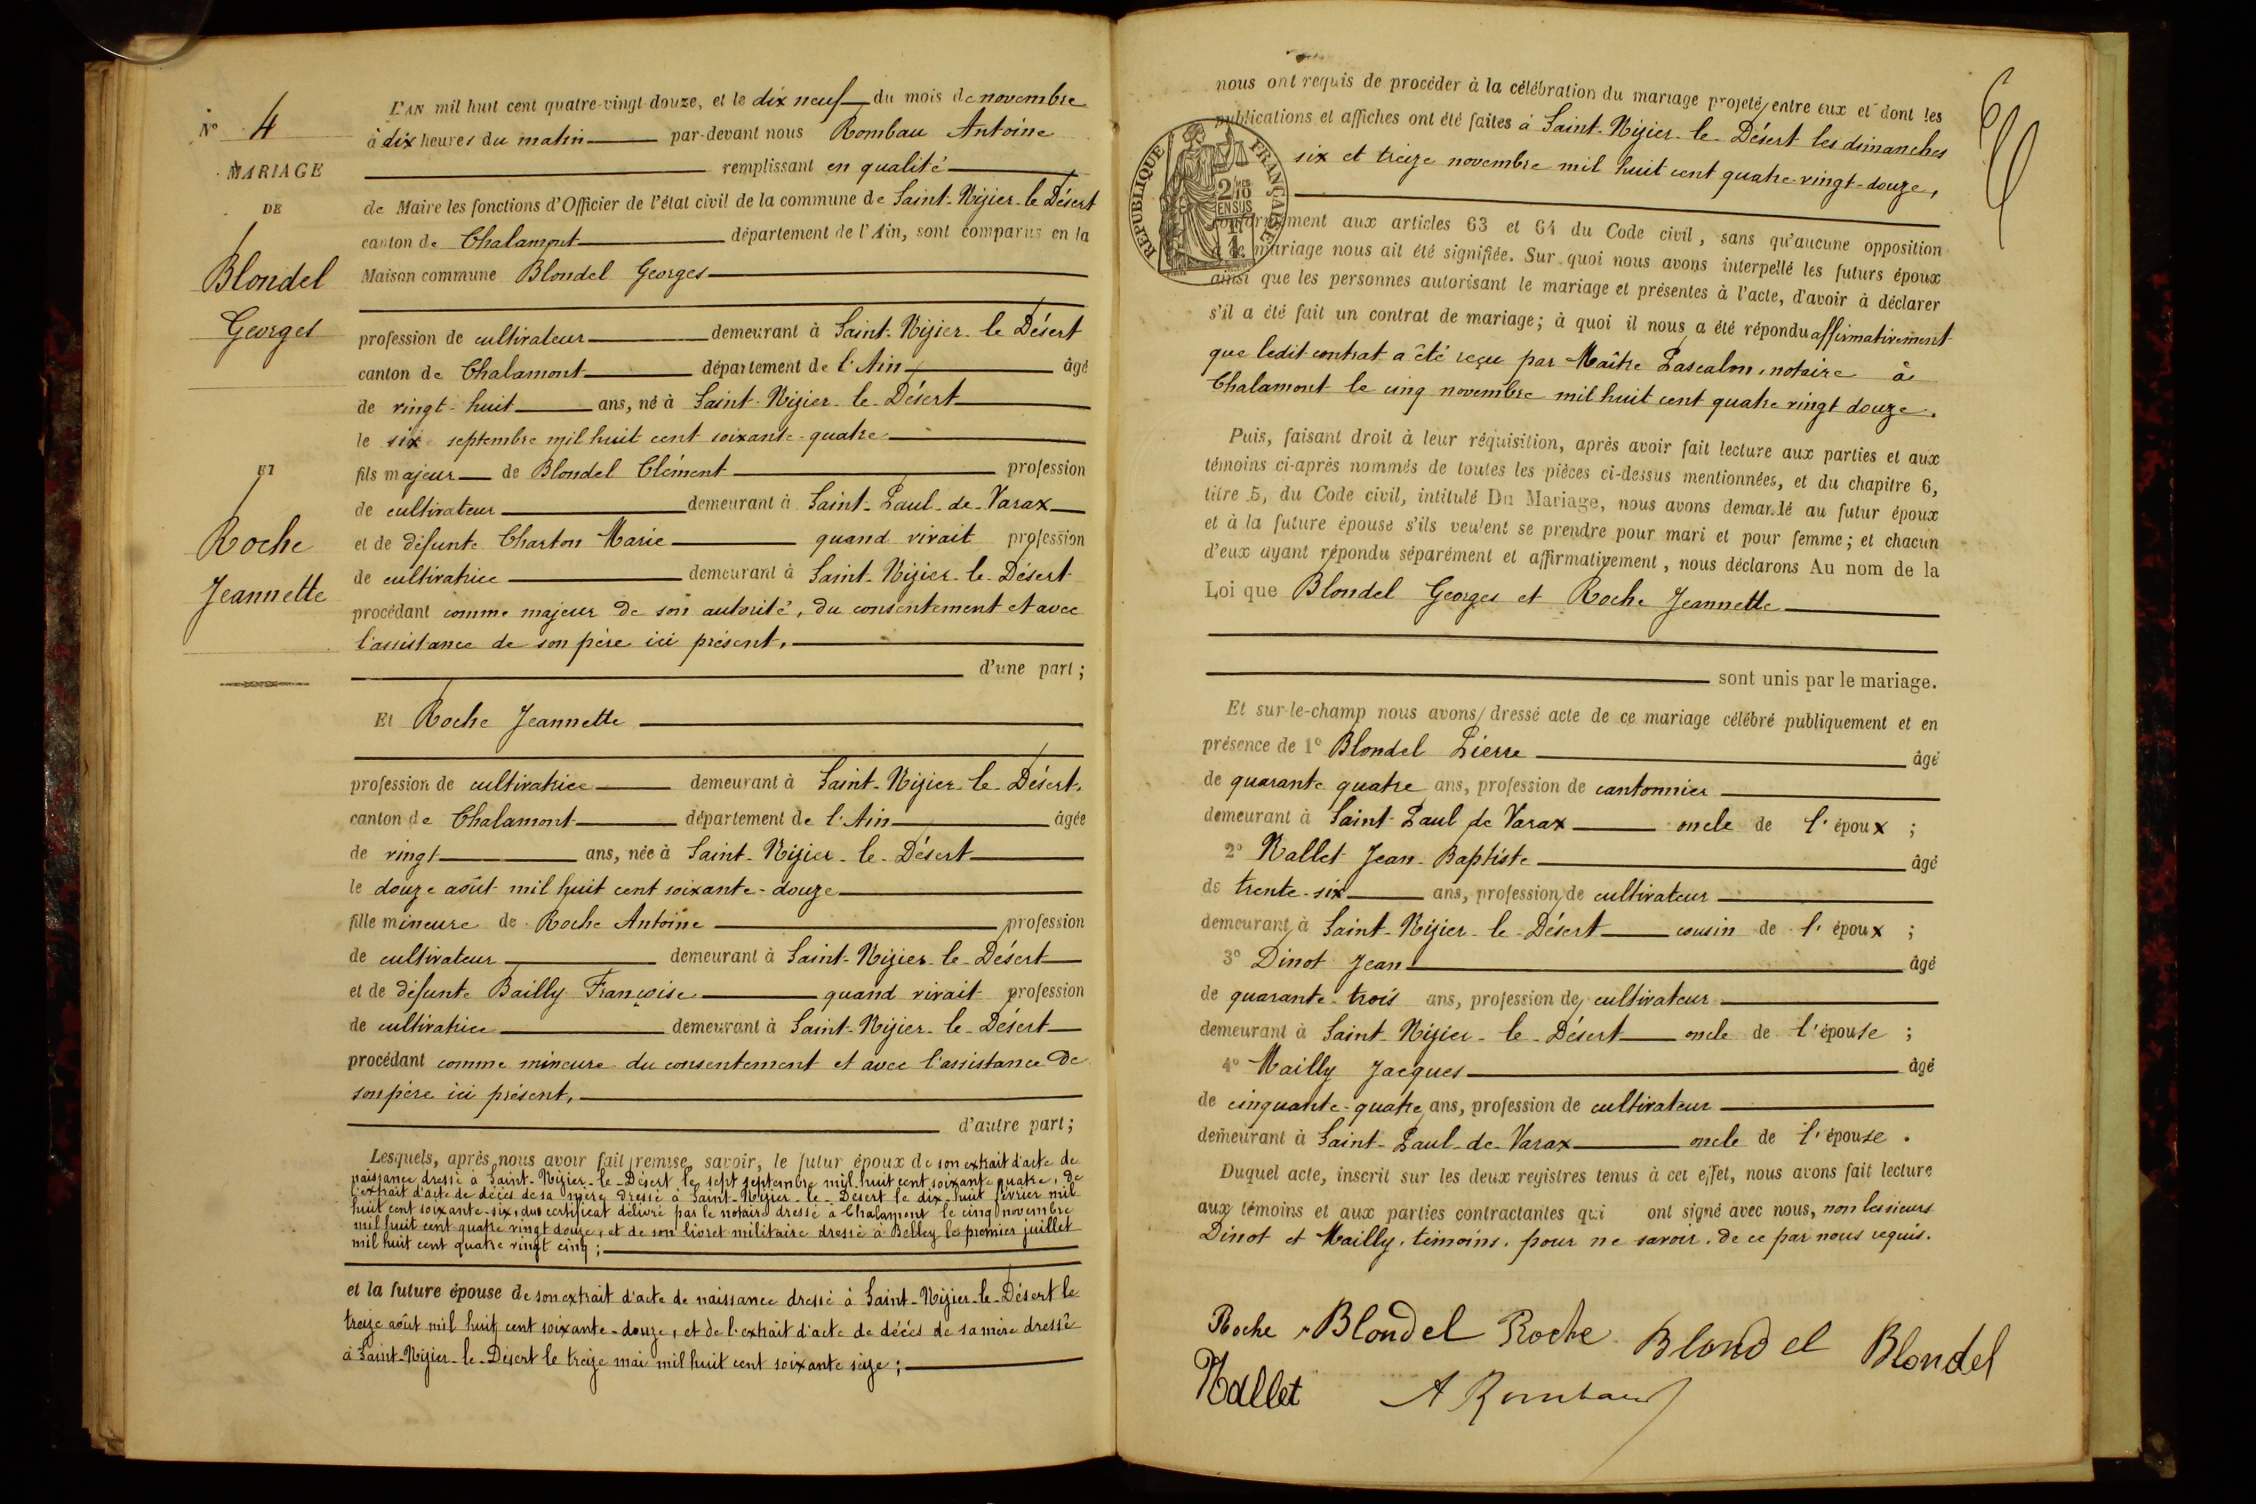 N° 4
MARIAGE
DE
Blondel
Georges
ET
Roche
Jeannette
L'AN mil huit cent quatre-vingt douze, et le dix neuf du mois de novembre
à dix heures du matin par-devant nous Rombau Antoine
remplissant en qualité
de Maire les fonctions d'Officier de l'état civil de la commune de Saint-Nizier-le-Désert
canton de Chalamont département de l'Ain, sont comparus en la
Maison commune Blondel Georges
profession de cultivateur demeurant à Saint-Nizier-le Désert
canton de Chalamont département de l'Ain âgé
de vingt-huit ans, né à Saint-Nizier-le-Désert
le six septembre mil huit cent soixante-quatre
fils majeur de Blondel Clément profession
de cultivateur demeurant à Saint-Paul-de-Varax
et de défunte Charton Marie quand vivait profession
de cultivatrice demeurant à Saint-Nizier-le-Désert
procédant comme majeur de son autorité, du consentement et avec
l'assistance de son père ici présent,
d'une part;
Et Roche Jeannette
profession de cultivatrice demeurant à Saint-Nizier-le-Désert,
canton de Chalamont département de l'Ain âgée
de vingt ans, née à Saint-Nizier-le-Désert
le douze août mil huit cent soixante-douze
fille mineure de Roche Antoine profession
de cultivateur demeurant à Saint-Nizier-le-Désert
et de défunte Bailly Françoise quand vivait profession
de cultivatrice demeurant à Saint-Nizier-le-Désert
procédant comme mineure du consentement et avec l'assistance de
son père ici présent,
d'autre part;
Lesquels, après nous avoir fait remise, savoir, le futur époux de son extrait d'acte de
naissance dressé à Saint-Nizier-le-Désert le sept septembre mil huit cent soixante quatre, de
l'extrait d'acte de décès de sa mère dressé à Saint-Nizier-le-Désert le dix-huit février mil
huit cent soixante-six, du certificat délivré par le notaire dressé à Chalamont le cinq novembre
mil huit cent quatre vingt douze, et de son livret militaire dressé à Belley le premier juillet
mil huit cent quatre vingt cinq;
et la future épouse de son extrait d'acte de naissance dressé à Saint-Nizier-le-Désert le
treize août mil huit cent soixante-douze, et de l'extrait d'acte de décès de sa mère dressé
à Saint-Nizier-le-Désert le treize mai mil huit cent soixante seize;
nous ont requis de procéder à la célébration du mariage projeté entre eux et dont les
publications et affiches ont été faites à Saint-Nizier-le-Désert les dimanches
six et treize novembre mil huit cent quatre-vingt-douze,
RÉPUBLIQUE FRANÇAISE
2/10 EN SUS
conformément aux articles 63 et 64 du Code civil, sans qu'aucune opposition
mariage nous ait été signifiée. Sur quoi nous avons interpellé les futurs époux
ainsi que les personnes autorisant le mariage et présentes à l'acte, d'avoir à déclarer
s'il a été fait un contrat de mariage; à quoi il nous a été répondu affirmativement
que ledit contrat a été reçu par Maître Pascalon, notaire à
Chalamont le cinq novembre mil huit cent quatre vingt douze.
Puis, faisant droit à leur réquisition, après avoir fait lecture aux parties et aux
témoins ci-après nommés de toutes les pièces ci-dessus mentionnées, et du chapitre 6,
titre 5, du Code civil, intitulé Du Mariage, nous avons demandé au futur époux
et à la future épouse s'ils veulent se prendre pour mari et pour femme; et chacun
d'eux ayant répondu séparément et affirmativement, nous déclarons Au nom de la
Loi que Blondel Georges et Roche Jeannette
sont unis par le mariage.
Et sur-le-champ nous avons dressé acte de ce mariage célébré publiquement et en
présence de 1° Blondel Pierre âgé
de quarante quatre ans, profession de cantonnier
demeurant à Saint-Paul de Varax oncle de l'époux;
2° Nallet Jean-Baptiste âgé
de trente-six ans, profession de cultivateur
demeurant à Saint-Nizier-le-Désert cousin de l'époux;
3° Dinot Jean âgé
de quarante-trois ans, profession de cultivateur
demeurant à Saint-Nizier-le-Désert oncle de l'épouse;
4° Mailly Jacques âgé
de cinquante-quatre ans, profession de cultivateur
demeurant à Saint-Paul-de-Varax oncle de l'épouse.
Duquel acte, inscrit sur les deux registres tenus à cet effet, nous avons fait lecture
aux témoins et aux parties contractantes qui ont signé avec nous, non les sieurs
Dinot et Mailly, témoins, pour ne savoir, de ce par nous requis.
Roche Blondel Roche Blondel Blondel
Nallet A Rombau